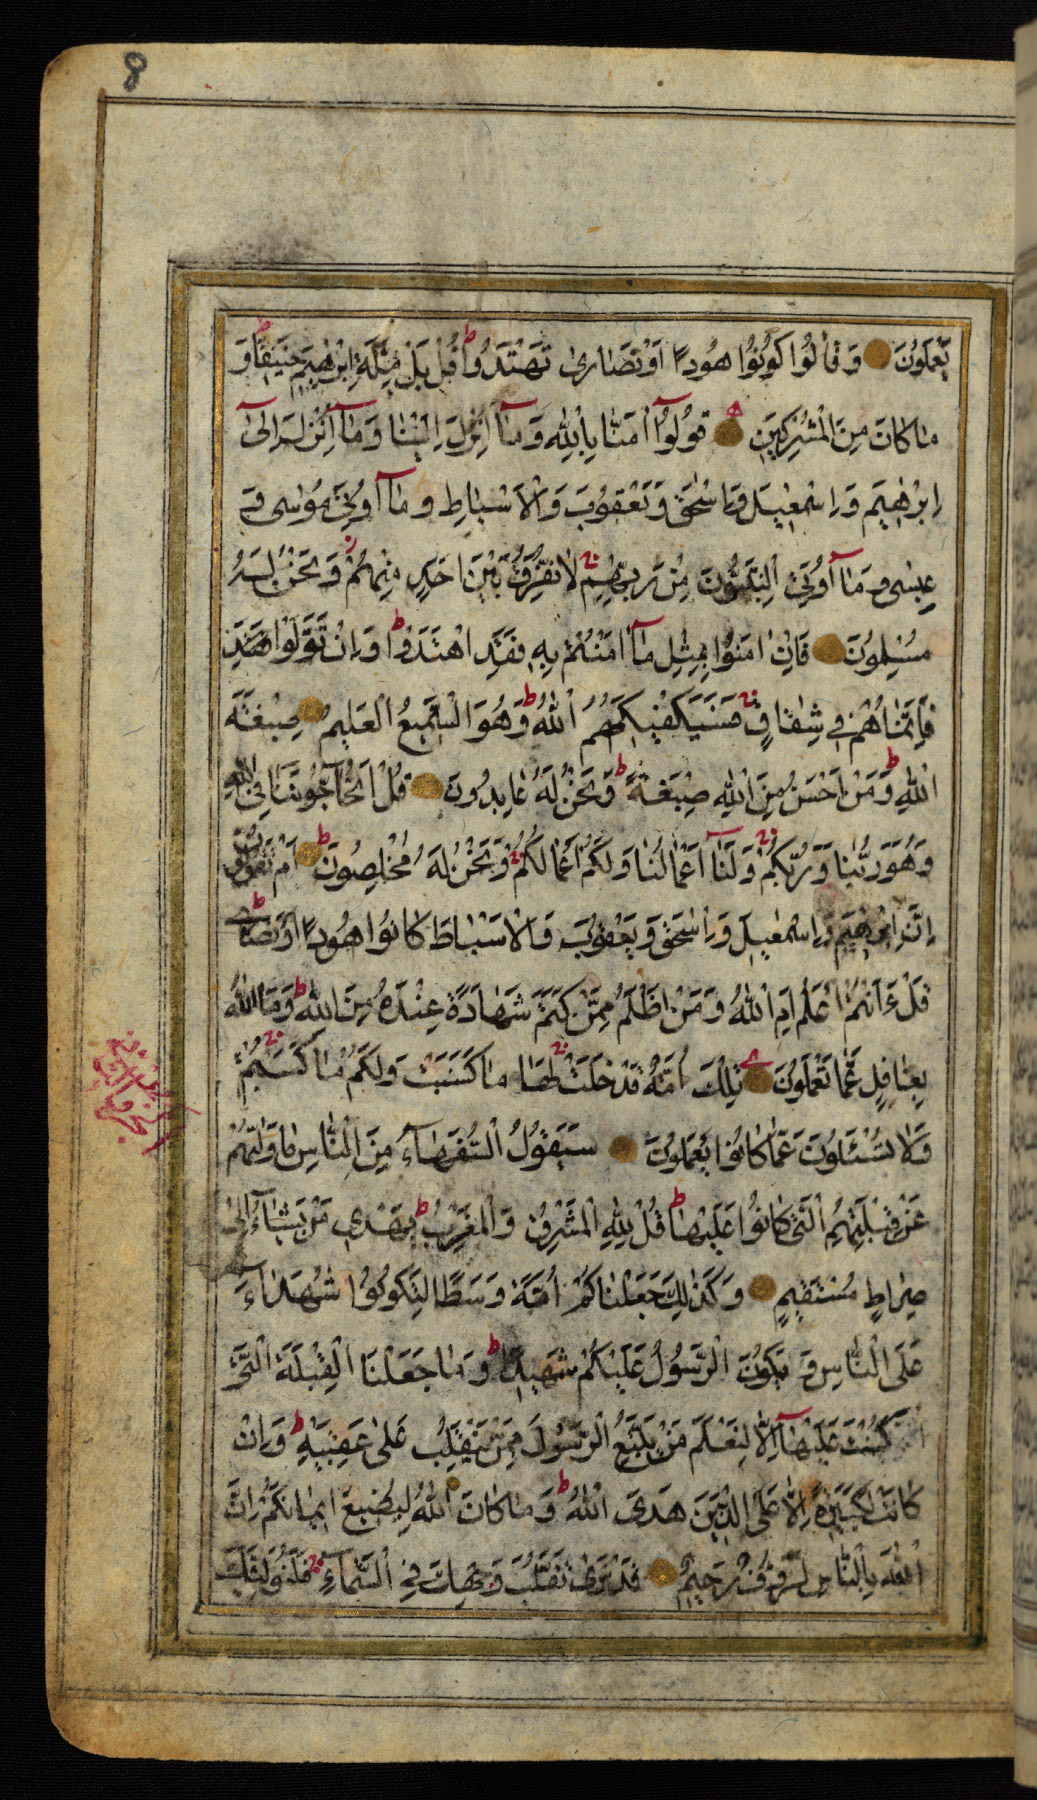 8
يَعْمَلُونَ وَقَالُوا كُونُوا هُودًا أَوْ نَصَارَىٰ تَهْتَدُوا قُلْ بَلْ مِلَّةَ إِبْرٰهِيمَ حَنِيفًا وَ
مَا كَانَ مِنَ الْمُشْرِكِينَ قُولُوا آمَنَّا بِاللّٰهِ وَمَآ أُنْزِلَ إِلَيْنَا وَمَآ أُنْزِلَ إِلَىٰٓ
إِبْرٰهِيمَ وَإِسْمٰعِيلَ وَإِسْحٰقَ وَيَعْقُوبَ وَالْأَسْبَاطِ وَمَآ أُوتِيَ مُوسَى وَ
عِيسَى وَمَآ أُوتِيَ النَّبِيُّونَ مِنْ رَبِّهِمْ لَا نُفَرِّقُ بَيْنَ أَحَدٍ مِنْهُمْ وَنَحْنُ لَهُ
مُسْلِمُونَ فَإِنْ اٰمَنُوا بِمِثْلِ مَآ اٰمَنْتُمْ بِهِ فَقَدِ اهْتَدَوْا وَإِنْ تَوَلَّوْا
فَإِنَّمَا هُمْ فِي شِقَاقٍ فَسَيَكْفِيكَهُمُ اللّٰهُ وَهُوَ السَّمِيعُ الْعَلِيمُ صِبْغَةَ
اللّٰهِ وَمَنْ أَحْسَنُ مِنَ اللّٰهِ صِبْغَةً وَنَحْنُ لَهُ عَابِدُونَ قُلْ أَتُحَآجُّونَنَا فِي اللّٰهِ
وَهُوَ رَبُّنَا وَرَبُّكُمْ وَلَنَآ أَعْمَالُنَا وَلَكُمْ أَعْمَالُكُمْ وَنَحْنُ لَهُ مُخْلِصُونَ أَمْ تَقُولُونَ
إِنَّ إِبْرٰهِيمَ وَإِسْمٰعِيلَ وَإِسْحٰقَ وَيَعْقُوبَ وَالْأَسْبَاطَ كَانُوا هُودًا أَوْ نَصَارَىٰ
قُلْ ءَأَنْتُمْ أَعْلَمُ أَمِ اللّٰهُ وَمَنْ أَظْلَمُ مِمَّنْ كَتَمَ شَهَادَةً عِنْدَهُ مِنَ اللّٰهِ وَمَا اللّٰهُ
بِغَافِلٍ عَمَّا تَعْمَلُونَ تِلْكَ أُمَّةٌ قَدْ خَلَتْ لَهَا مَا كَسَبَتْ وَلَكُمْ مَا كَسَبْتُمْ
وَلَا تُسْئَلُونَ عَمَّا كَانُوا يَعْمَلُونَ سَيَقُولُ السُّفَهَآءُ مِنَ النَّاسِ مَا وَلّٰيهُمْ
عَنْ قِبْلَتِهِمُ الَّتِي كَانُوا عَلَيْهَا قُلْ لِلّٰهِ الْمَشْرِقُ وَالْمَغْرِبُ يَهْدِي مَنْ يَشَآءُ إِلَىٰ
صِرَاطٍ مُسْتَقِيمٍ وَكَذٰلِكَ جَعَلْنَاكُمْ أُمَّةً وَسَطًا لِتَكُونُوا شُهَدَآءَ
عَلَى النَّاسِ وَيَكُونَ الرَّسُولُ عَلَيْكُمْ شَهِيدًا وَمَا جَعَلْنَا الْقِبْلَةَ الَّتِي
كُنْتَ عَلَيْهَآ إِلَّا لِنَعْلَمَ مَنْ يَتَّبِعُ الرَّسُولَ مِمَّنْ يَنْقَلِبُ عَلَىٰ عَقِبَيْهِ وَإِنْ
كَانَتْ لَكَبِيرَةً إِلَّا عَلَى الَّذِينَ هَدَى اللّٰهُ وَمَا كَانَ اللّٰهُ لِيُضِيعَ إِيمَانَكُمْ إِنَّ
اللّٰهَ بِالنَّاسِ لَرَؤُفٌ رَحِيمٌ قَدْ نَرَىٰ تَقَلُّبَ وَجْهِكَ فِي السَّمَآءِ فَلَنُوَلِّيَنَّكَ